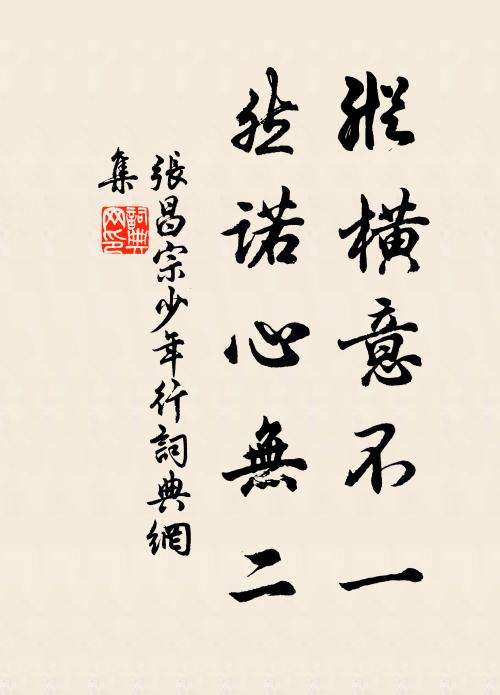 縱橫意不一
然諾心無二
張昌宗少年行詞典網
集
詞典
网印